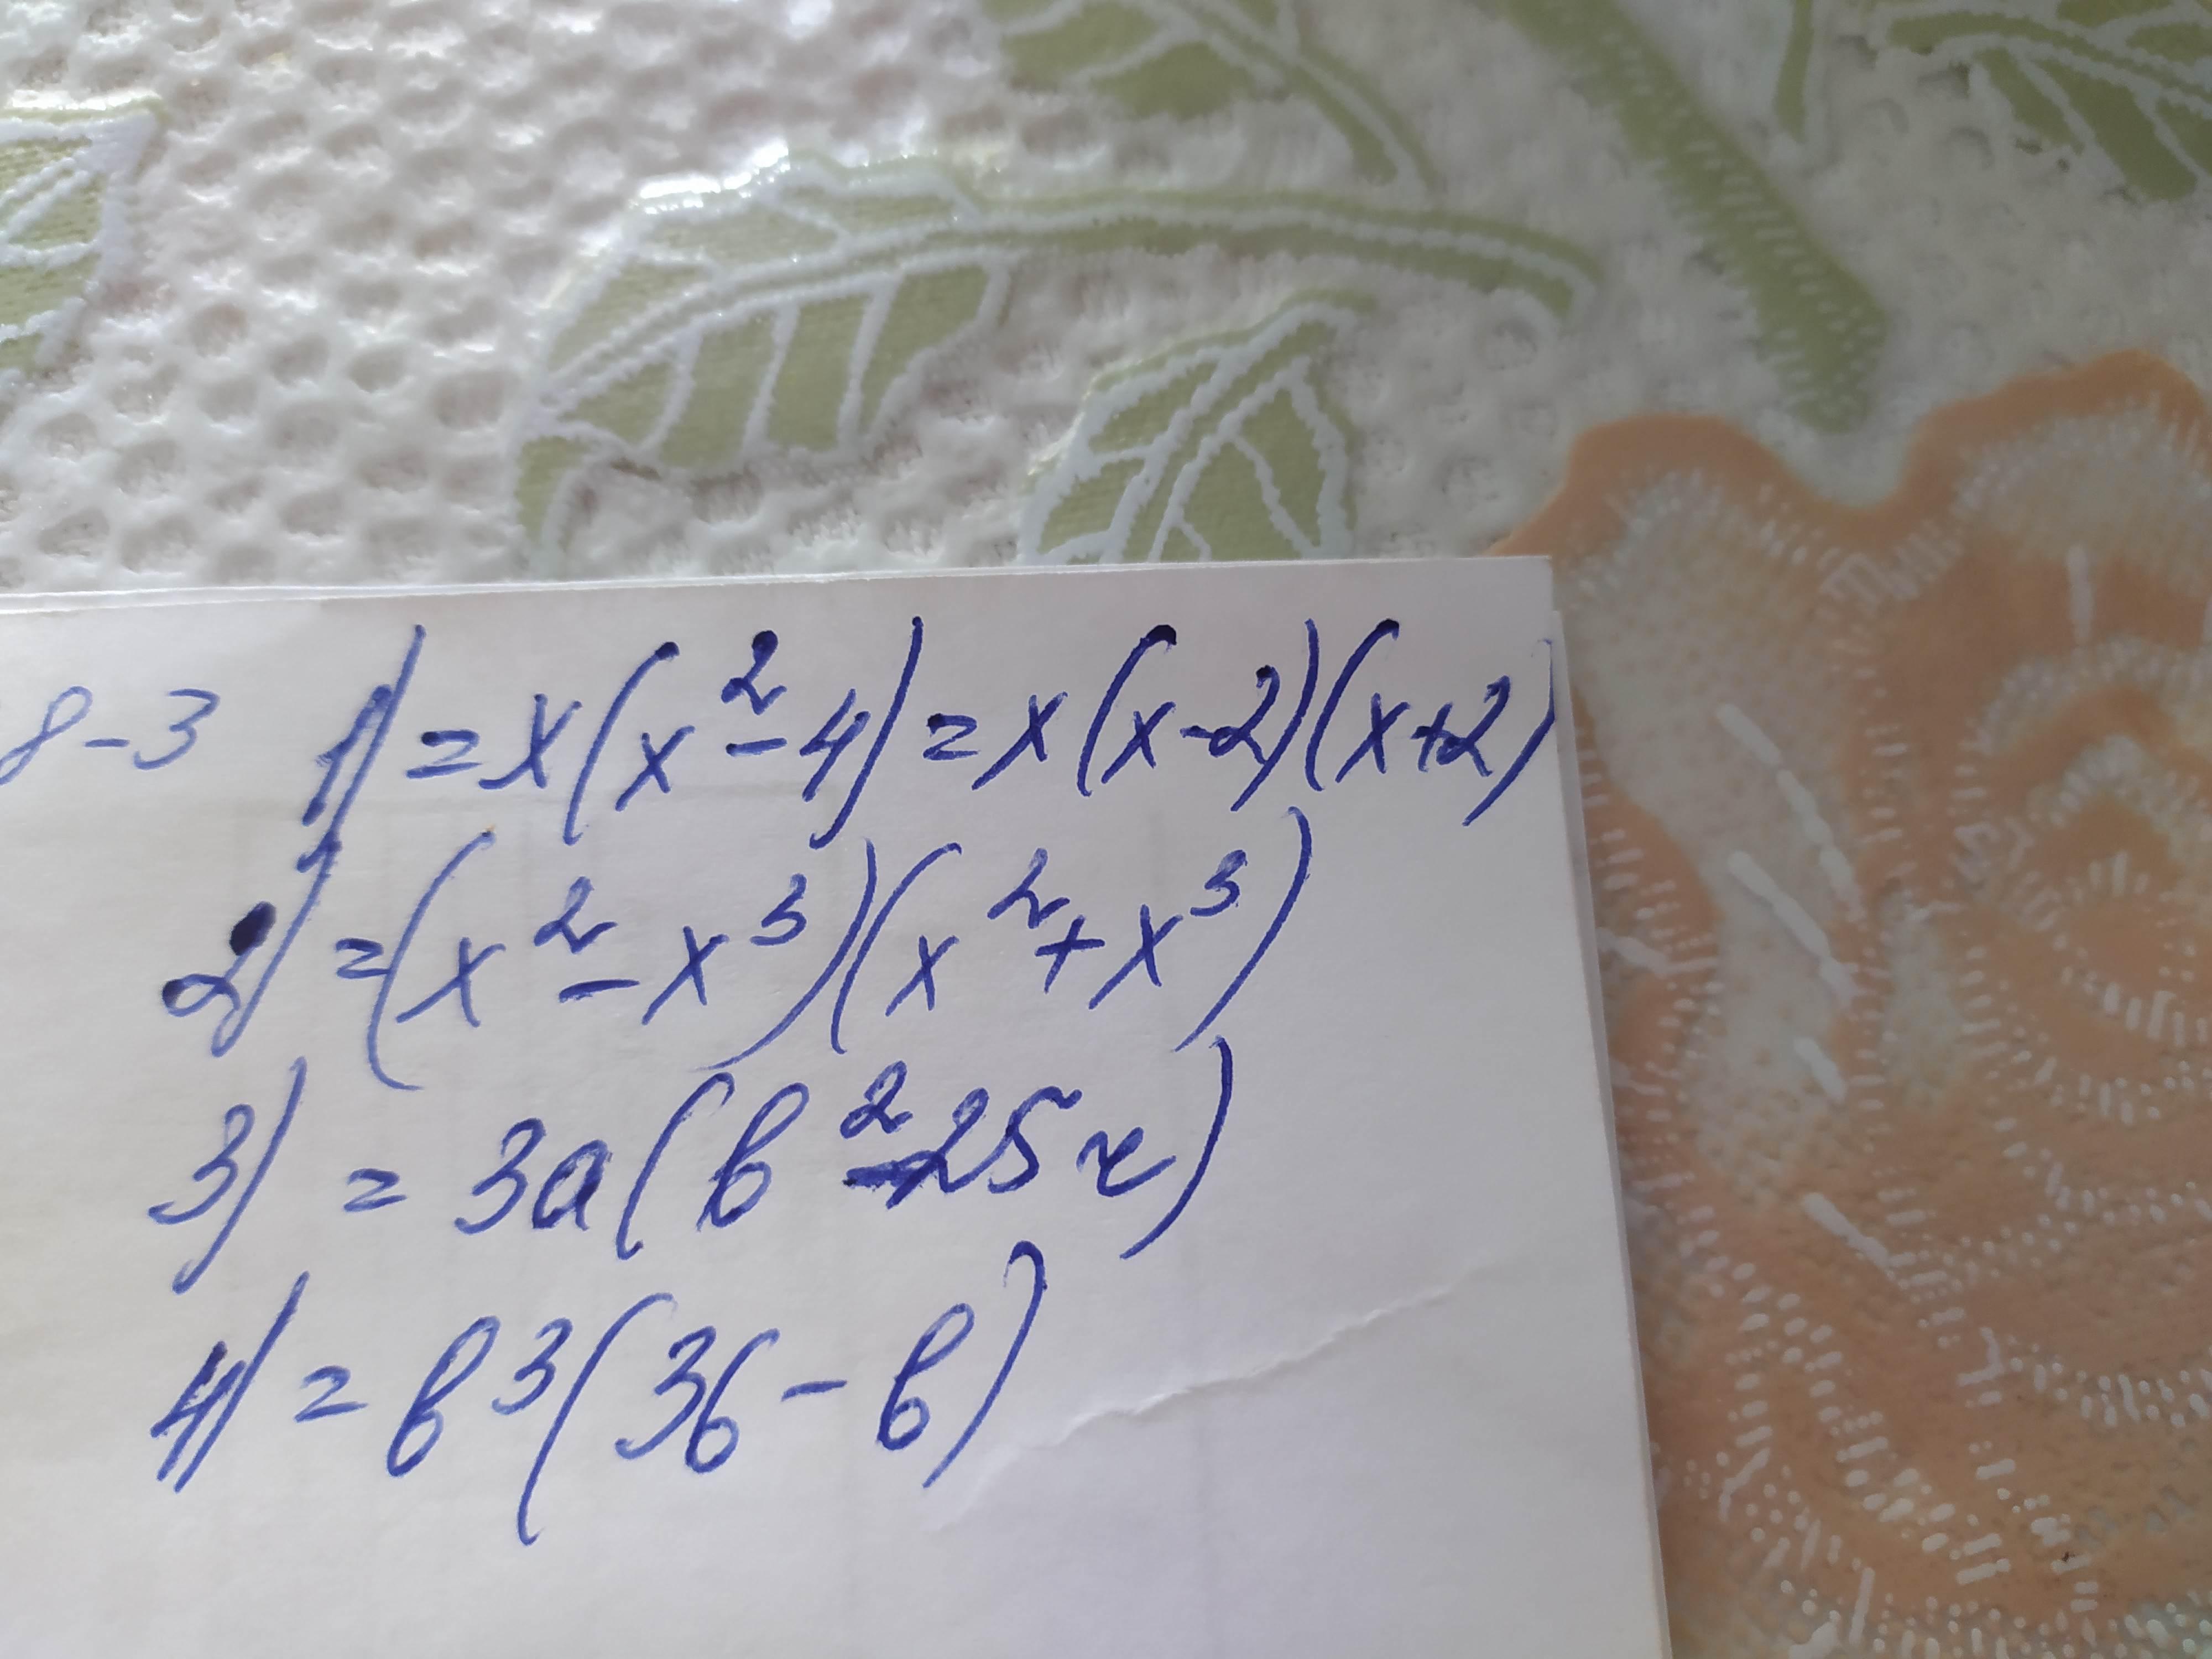 8-3 1) = x(x²-4) = x(x-2)(x+2)
2) = (x² - x³)(x² + x³)
3) = 3a(b² - 25x)
4) = b³(36 - b)